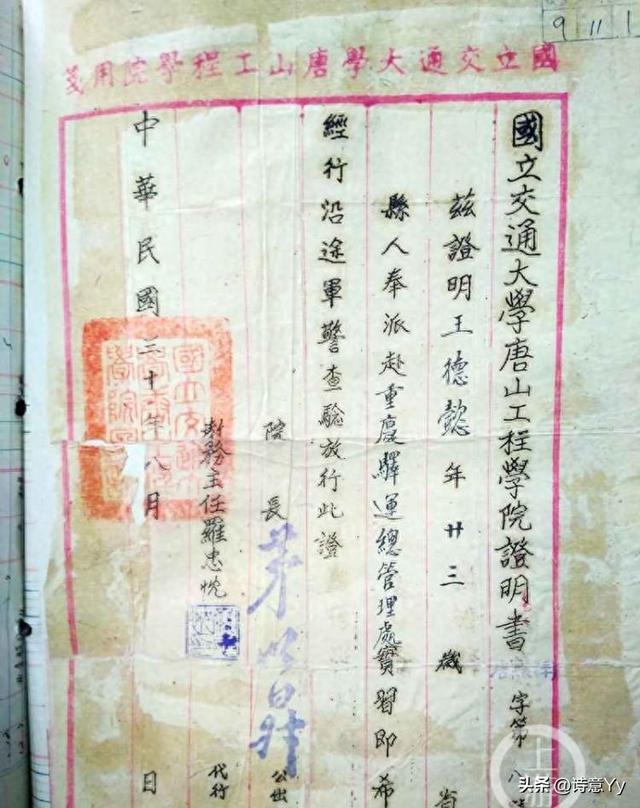 9 11 1
國立交通大學唐山工程學院用箋
國立交通大學唐山工程學院證明書 字第八
茲證明王德懿年廿三歲 省
縣人奉派赴重慶驛運總管理處實習即希
經行沿途軍警查驗放行此證
院長 茅以昇 公出
主任羅忠忱 代行
中華民國三十年八月 日
头条@诗意Yy